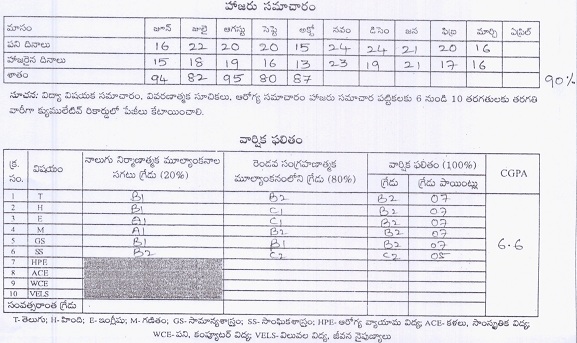 హాజరు సమాచారం
మాసం జూన్ జులై ఆగస్టు సెప్టె అక్టో నవం డిసెం జన ఫిబ్ర మార్చి ఏప్రిల్
పని దినాలు 16 22 20 20 15 24 24 21 20 16
హాజరైన దినాలు 15 18 19 16 13 23 19 21 17 16
శాతం 94 82 95 80 87 90%
సూచన: విద్యా విషయక సమాచారం, వివరణాత్మక సూచికలు, ఆరోగ్య సమాచారం హాజరు సమాచార పట్టికలకు 6 నుండి 10 తరగతులకు తరగతి
వారీగా క్యుములేటివ్ రికార్డులో పేజీలు కేటాయించాలి.
వార్షిక ఫలితం
క్ర. సం. విషయం నాలుగు నిర్మాణాత్మక మూల్యాంకనాల సగటు గ్రేడు (20%) రెండవ సంగ్రహణాత్మక మూల్యాంకనంలోని గ్రేడు (80%) వార్షిక ఫలితం (100%) CGPA
గ్రేడు గ్రేడు పాయింట్లు
1 T B1 B2 B2 07
2 H B1 C1 B2 07
3 E A1 C1 B2 07
4 M A1 B2 B2 07
5 GS B1 B1 B2 07 6.6
6 SS B2 C2 C2 05
7 HPE
8 ACE
9 WCE
10 VELS
సంవత్సరాంత గ్రేడు
T- తెలుగు; H- హింది; E- ఇంగ్లీషు; M- గణితం; GS- సామాన్యశాస్త్రం; SS- సాంఘికశాస్త్రం; HPE- ఆరోగ్య వ్యాయామ విద్య; ACE- కళలు, సాంస్కృతిక విద్య,
WCE- పని, కంప్యూటర్ విద్య; VELS- విలువల విద్య, జీవన నైపుణ్యాలు